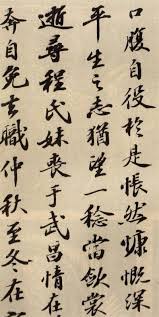 口腹自役於是悵然慷慨深
平生之志猶望一稔當斂裳
逝尋程氏妹喪于武昌情在
奔自免去職仲秋至冬在